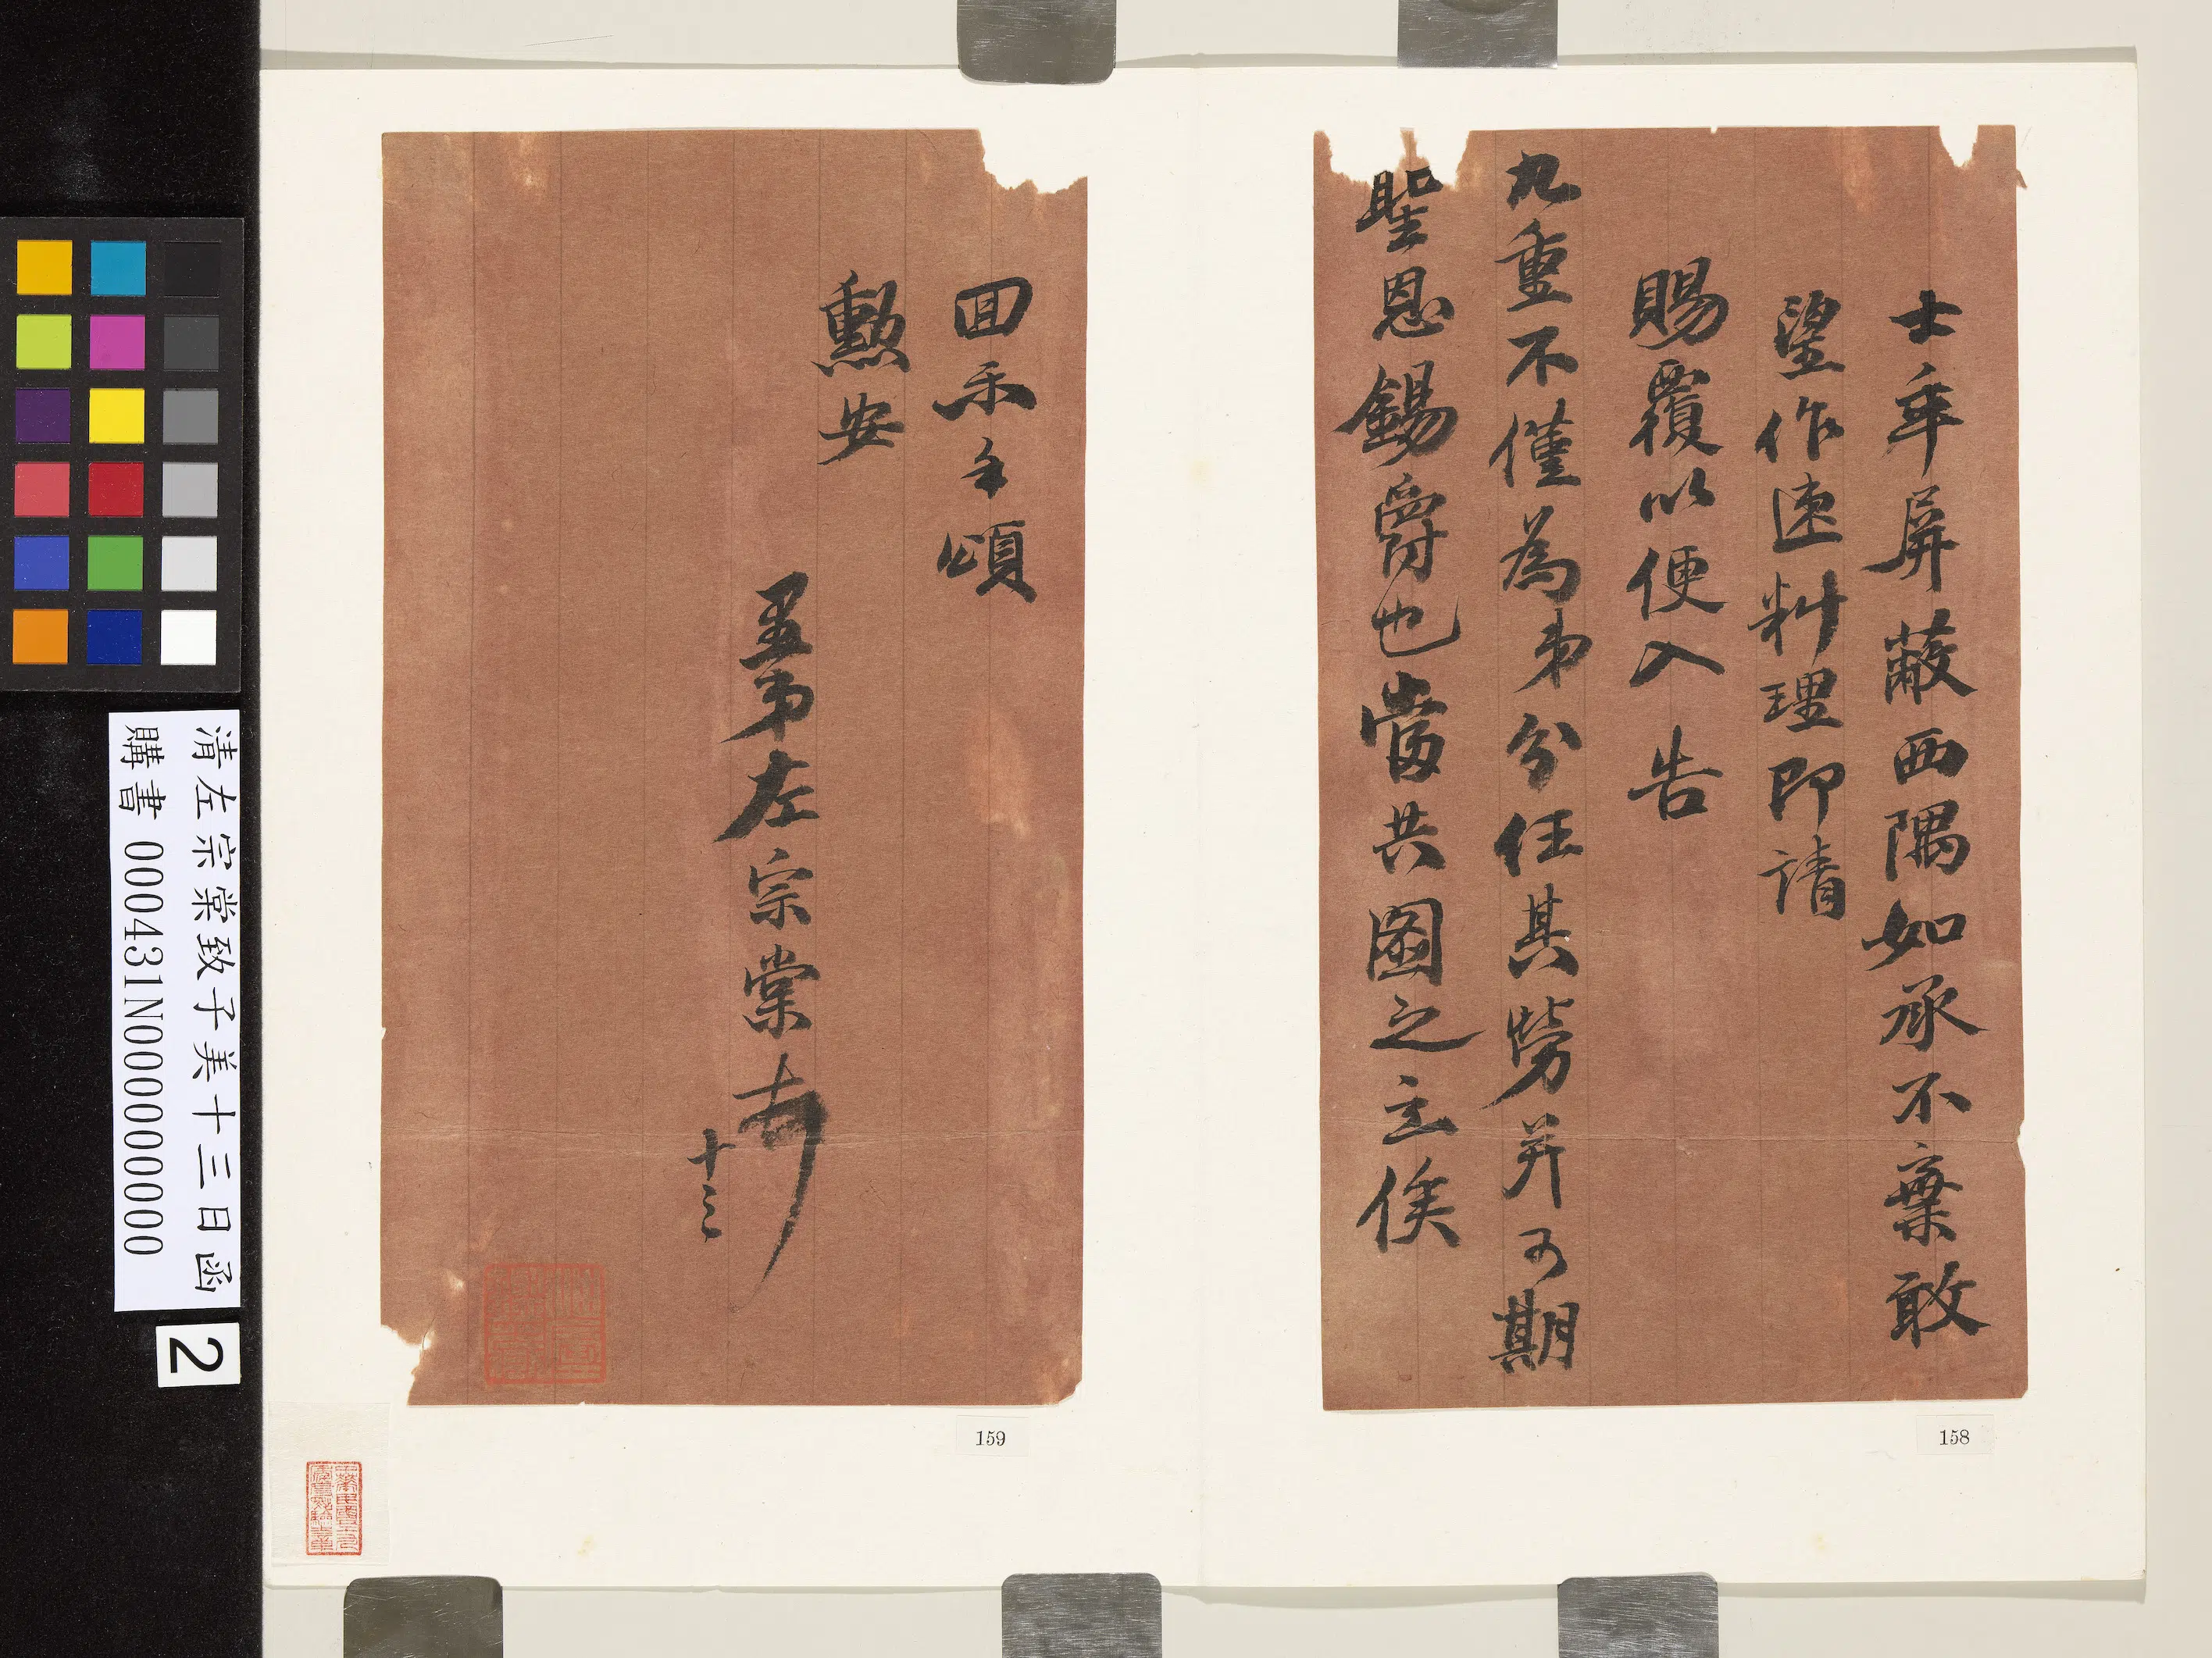 士卒屏蔽西隅如承不棄敢
望作速料理即請
賜覆以便入告
九重不僅為弟分任其勞并可期
聖恩錫爵也當共圖之立俟
158
回示手頌
勳安
愚弟左宗棠
十三
159
清左宗棠致子美十三日函
購書 000431N000000000
2